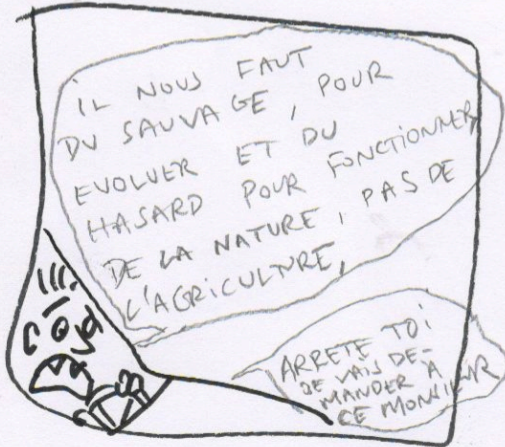 IL NOUS FAUT
DU SAUVAGE, POUR
EVOLUER ET DU
HASARD POUR FONCTIONNER,
DE LA NATURE, PAS DE
L'AGRICULTURE,
ARRETE TOI
JE VAIS DE-
MANDER À
CE MONSIEUR